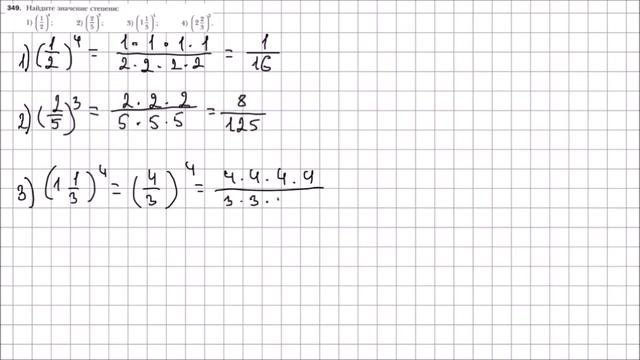 349. Найдите значение степени:
1) (1/2)⁴; 2) (2/5)³; 3) (1 1/3)⁴; 4) (2 2/3)³.
1) (1/2)⁴ = 1·1·1·1/2·2·2·2 = 1/16
2) (2/5)³ = 2·2·2/5·5·5 = 8/125
3) (1 1/3)⁴ = (4/3)⁴ = 4·4·4·4/3·3··